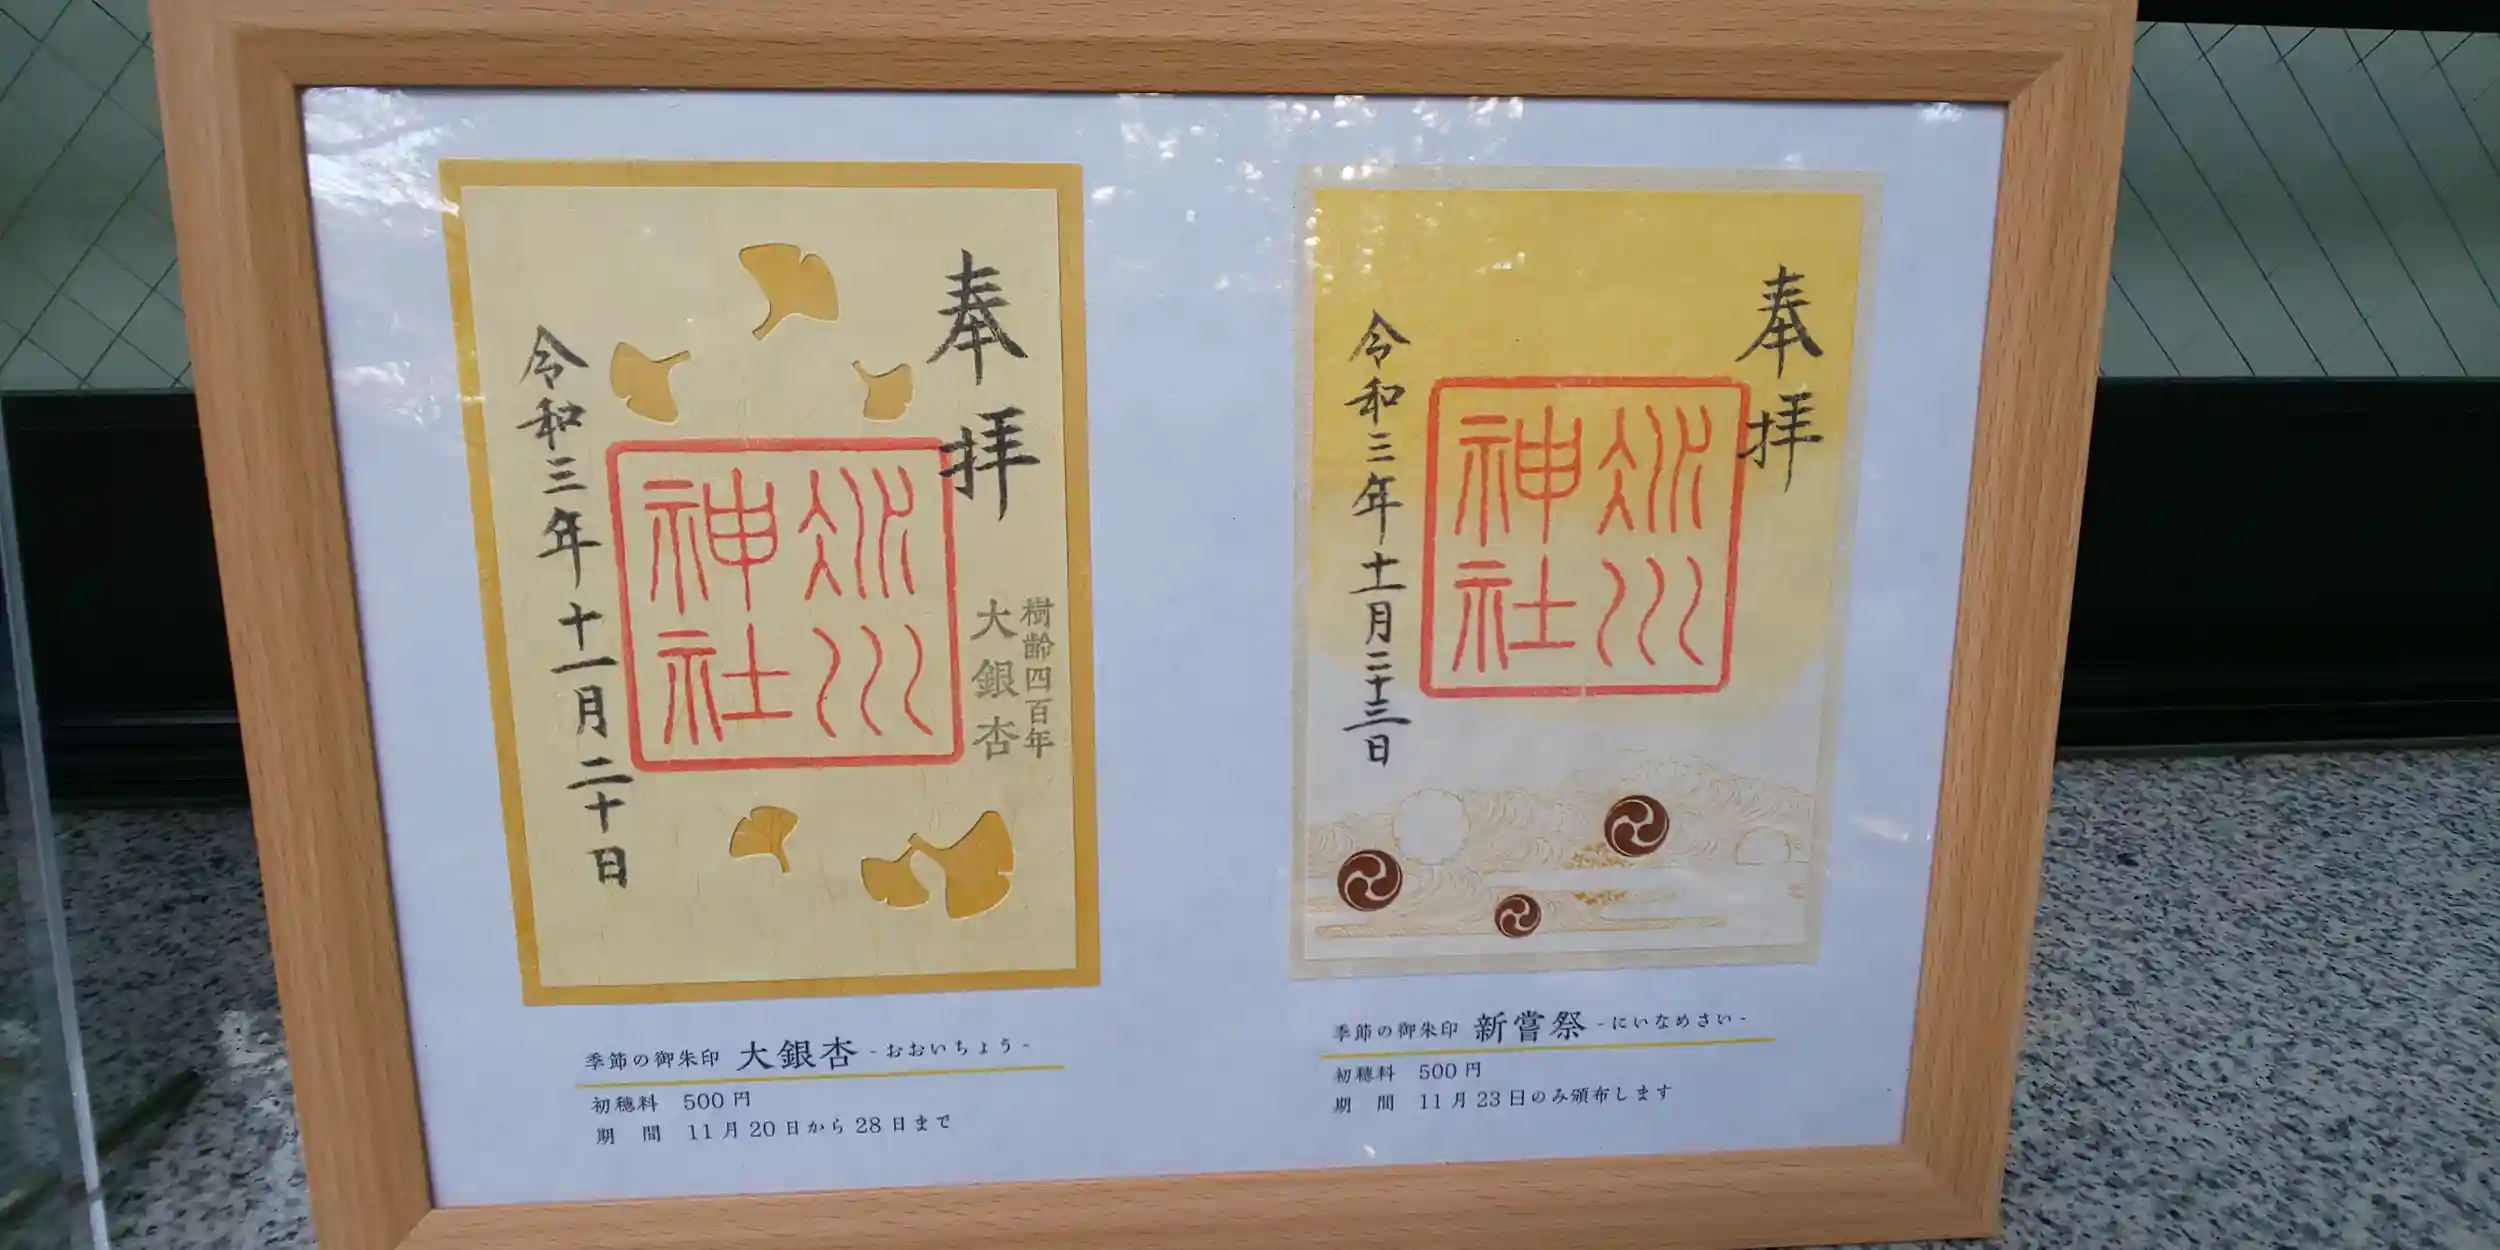 奉拝
樹齢四百年
大銀杏
氷川
神社
令和三年十一月二十日
季節の御朱印 大銀杏 -おおいちょう-
初穂料 500円
期 間 11月20日から28日まで
奉拝
氷川
神社
令和三年十一月二十三日
季節の御朱印 新嘗祭 -にいなめさい-
初穂料 500円
期 間 11月23日のみ頒布します